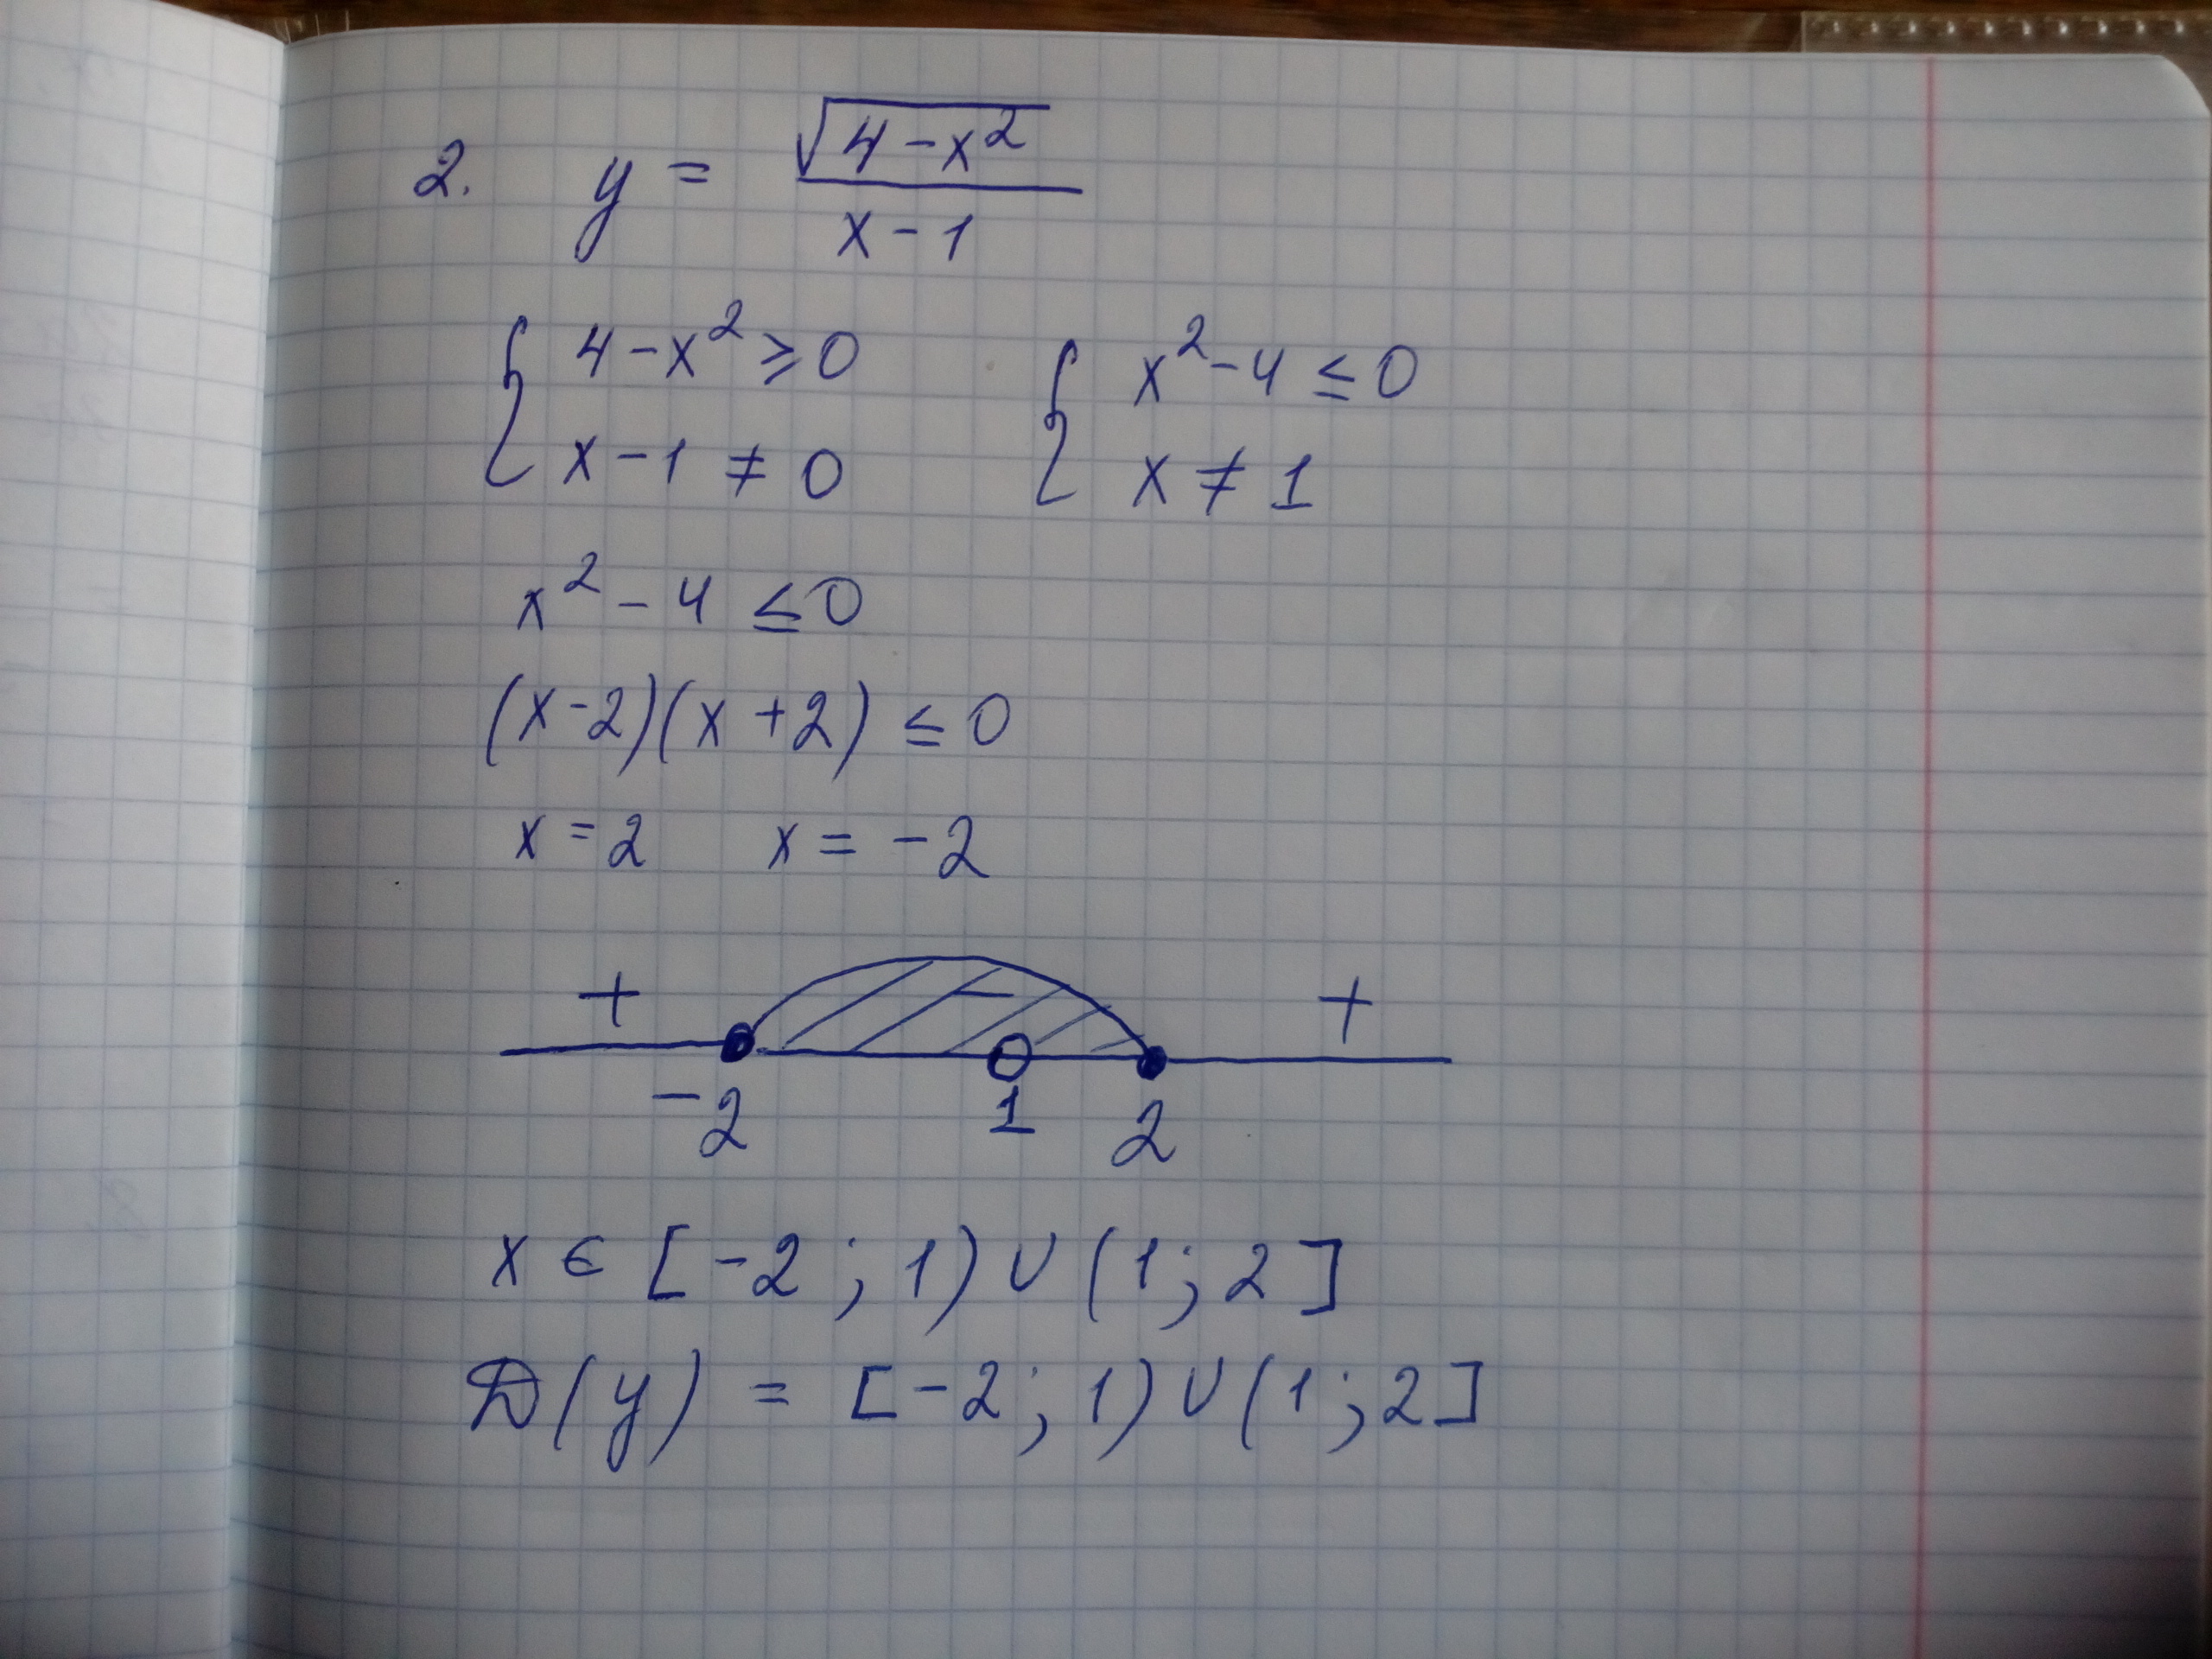 2. y = √(4-x²) / (x-1)
{ 4-x² ≥ 0 { x²-4 ≤ 0
x-1 ≠ 0 x ≠ 1
x² - 4 ≤ 0
(x-2)(x+2) ≤ 0
x = 2 x = -2
+ - +
-2 1 2
x ∈ [-2; 1) ∪ (1; 2]
D(y) = [-2; 1) ∪ (1; 2]